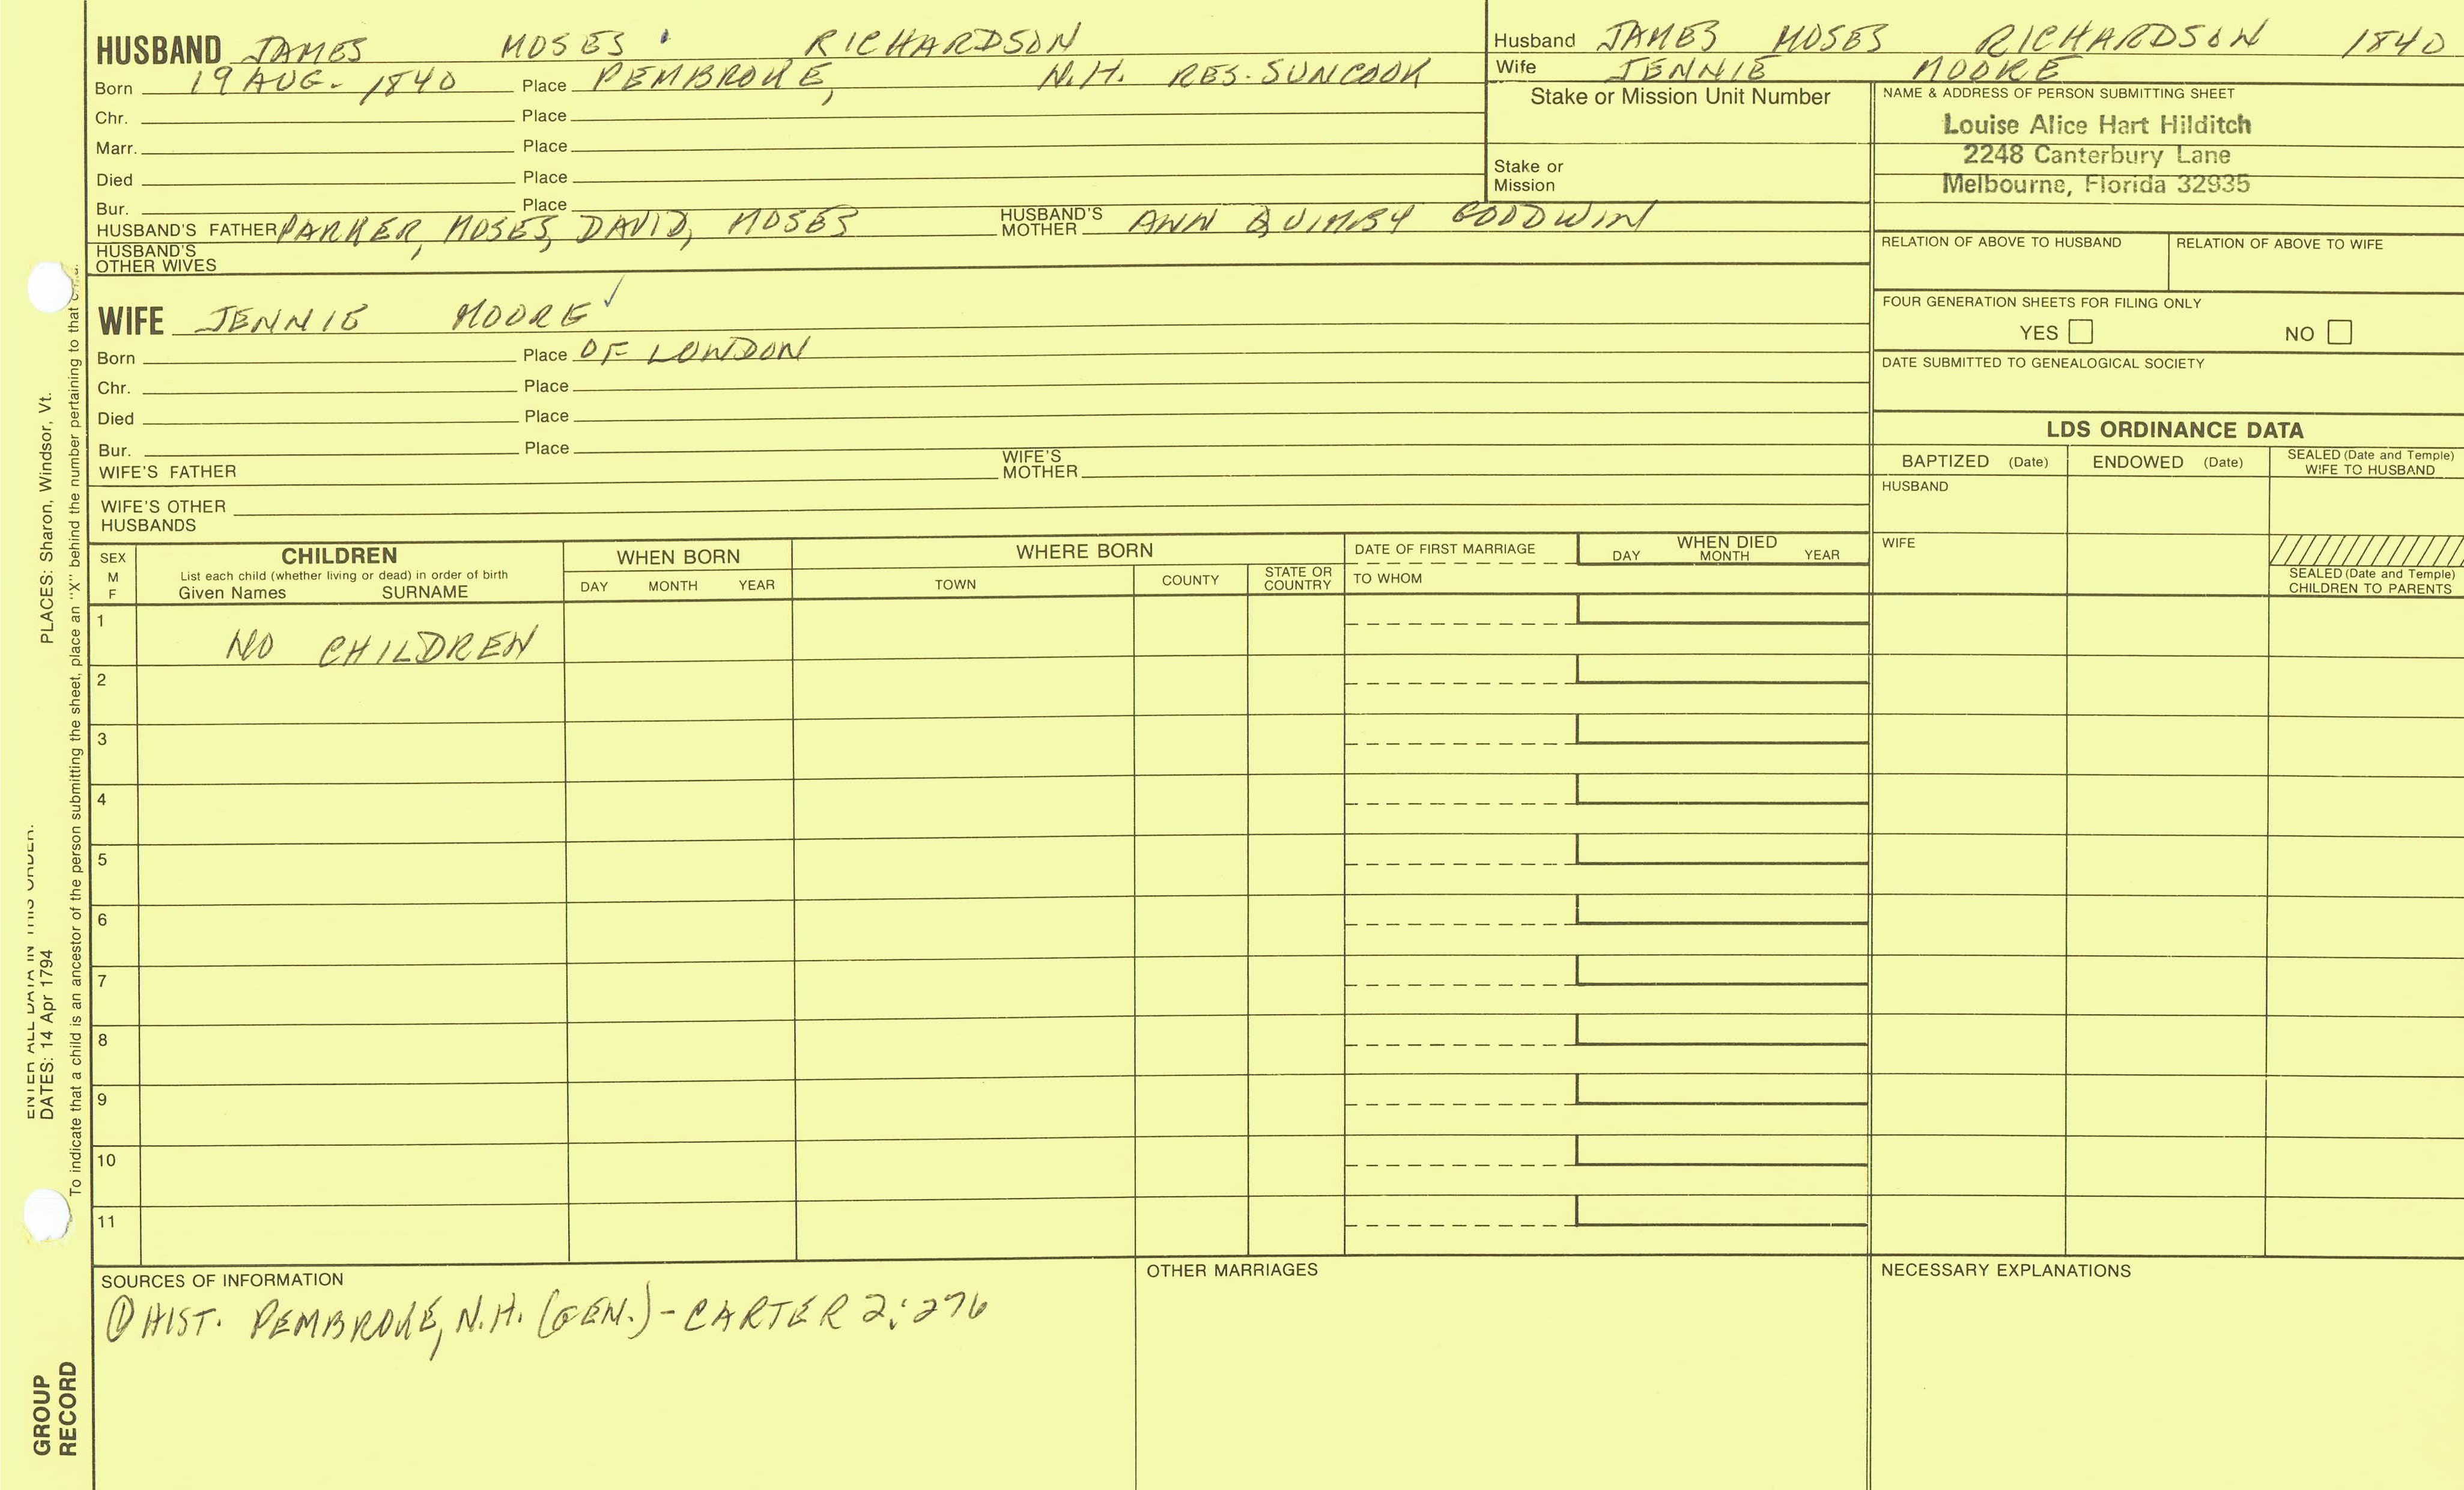 HUSBAND JAMES MOSES RICHARDSON
Born 19 AUG. 1840 Place PEMBROKE, N.H. RES. SUNCOOK
Chr. Place
Marr. Place
Died Place
Bur. Place
HUSBAND'S FATHER PARKER, MOSES, DAVID, MOSES HUSBAND'S MOTHER ANN QUIMBY GOODWIN
HUSBAND'S OTHER WIVES
WIFE JENNIE MOORE ✓
Born Place OF LONDON
Chr. Place
Died Place
Bur. Place
WIFE'S FATHER WIFE'S MOTHER
WIFE'S OTHER HUSBANDS
Husband JAMES MOSES RICHARDSON 1840
Wife JENNIE MOORE
Stake or Mission Unit Number
Stake or Mission
NAME & ADDRESS OF PERSON SUBMITTING SHEET
Louise Alice Hart Hilditch
2248 Canterbury Lane
Melbourne, Florida 32935
RELATION OF ABOVE TO HUSBAND RELATION OF ABOVE TO WIFE
FOUR GENERATION SHEETS FOR FILING ONLY
YES NO
DATE SUBMITTED TO GENEALOGICAL SOCIETY
LDS ORDINANCE DATA
BAPTIZED (Date) ENDOWED (Date) SEALED (Date and Temple) WIFE TO HUSBAND
HUSBAND
WIFE
SEALED (Date and Temple)
CHILDREN TO PARENTS
SEX M F
CHILDREN
List each child (whether living or dead) in order of birth
Given Names SURNAME
WHEN BORN
DAY MONTH YEAR
WHERE BORN
TOWN COUNTY STATE OR COUNTRY
DATE OF FIRST MARRIAGE
TO WHOM
WHEN DIED
DAY MONTH YEAR
1 NO CHILDREN
2
3
4
5
6
7
8
9
10
11
SOURCES OF INFORMATION
① HIST. PEMBROKE, N.H. (GEN.) - CARTER 2:276
OTHER MARRIAGES
NECESSARY EXPLANATIONS
GROUP RECORD
ENTER ALL DATA IN THIS ORDER:
DATES: 14 Apr 1794 PLACES: Sharon, Windsor, Vt.
To indicate that a child is an ancestor of the person submitting the sheet, place an "X" behind the number pertaining to that